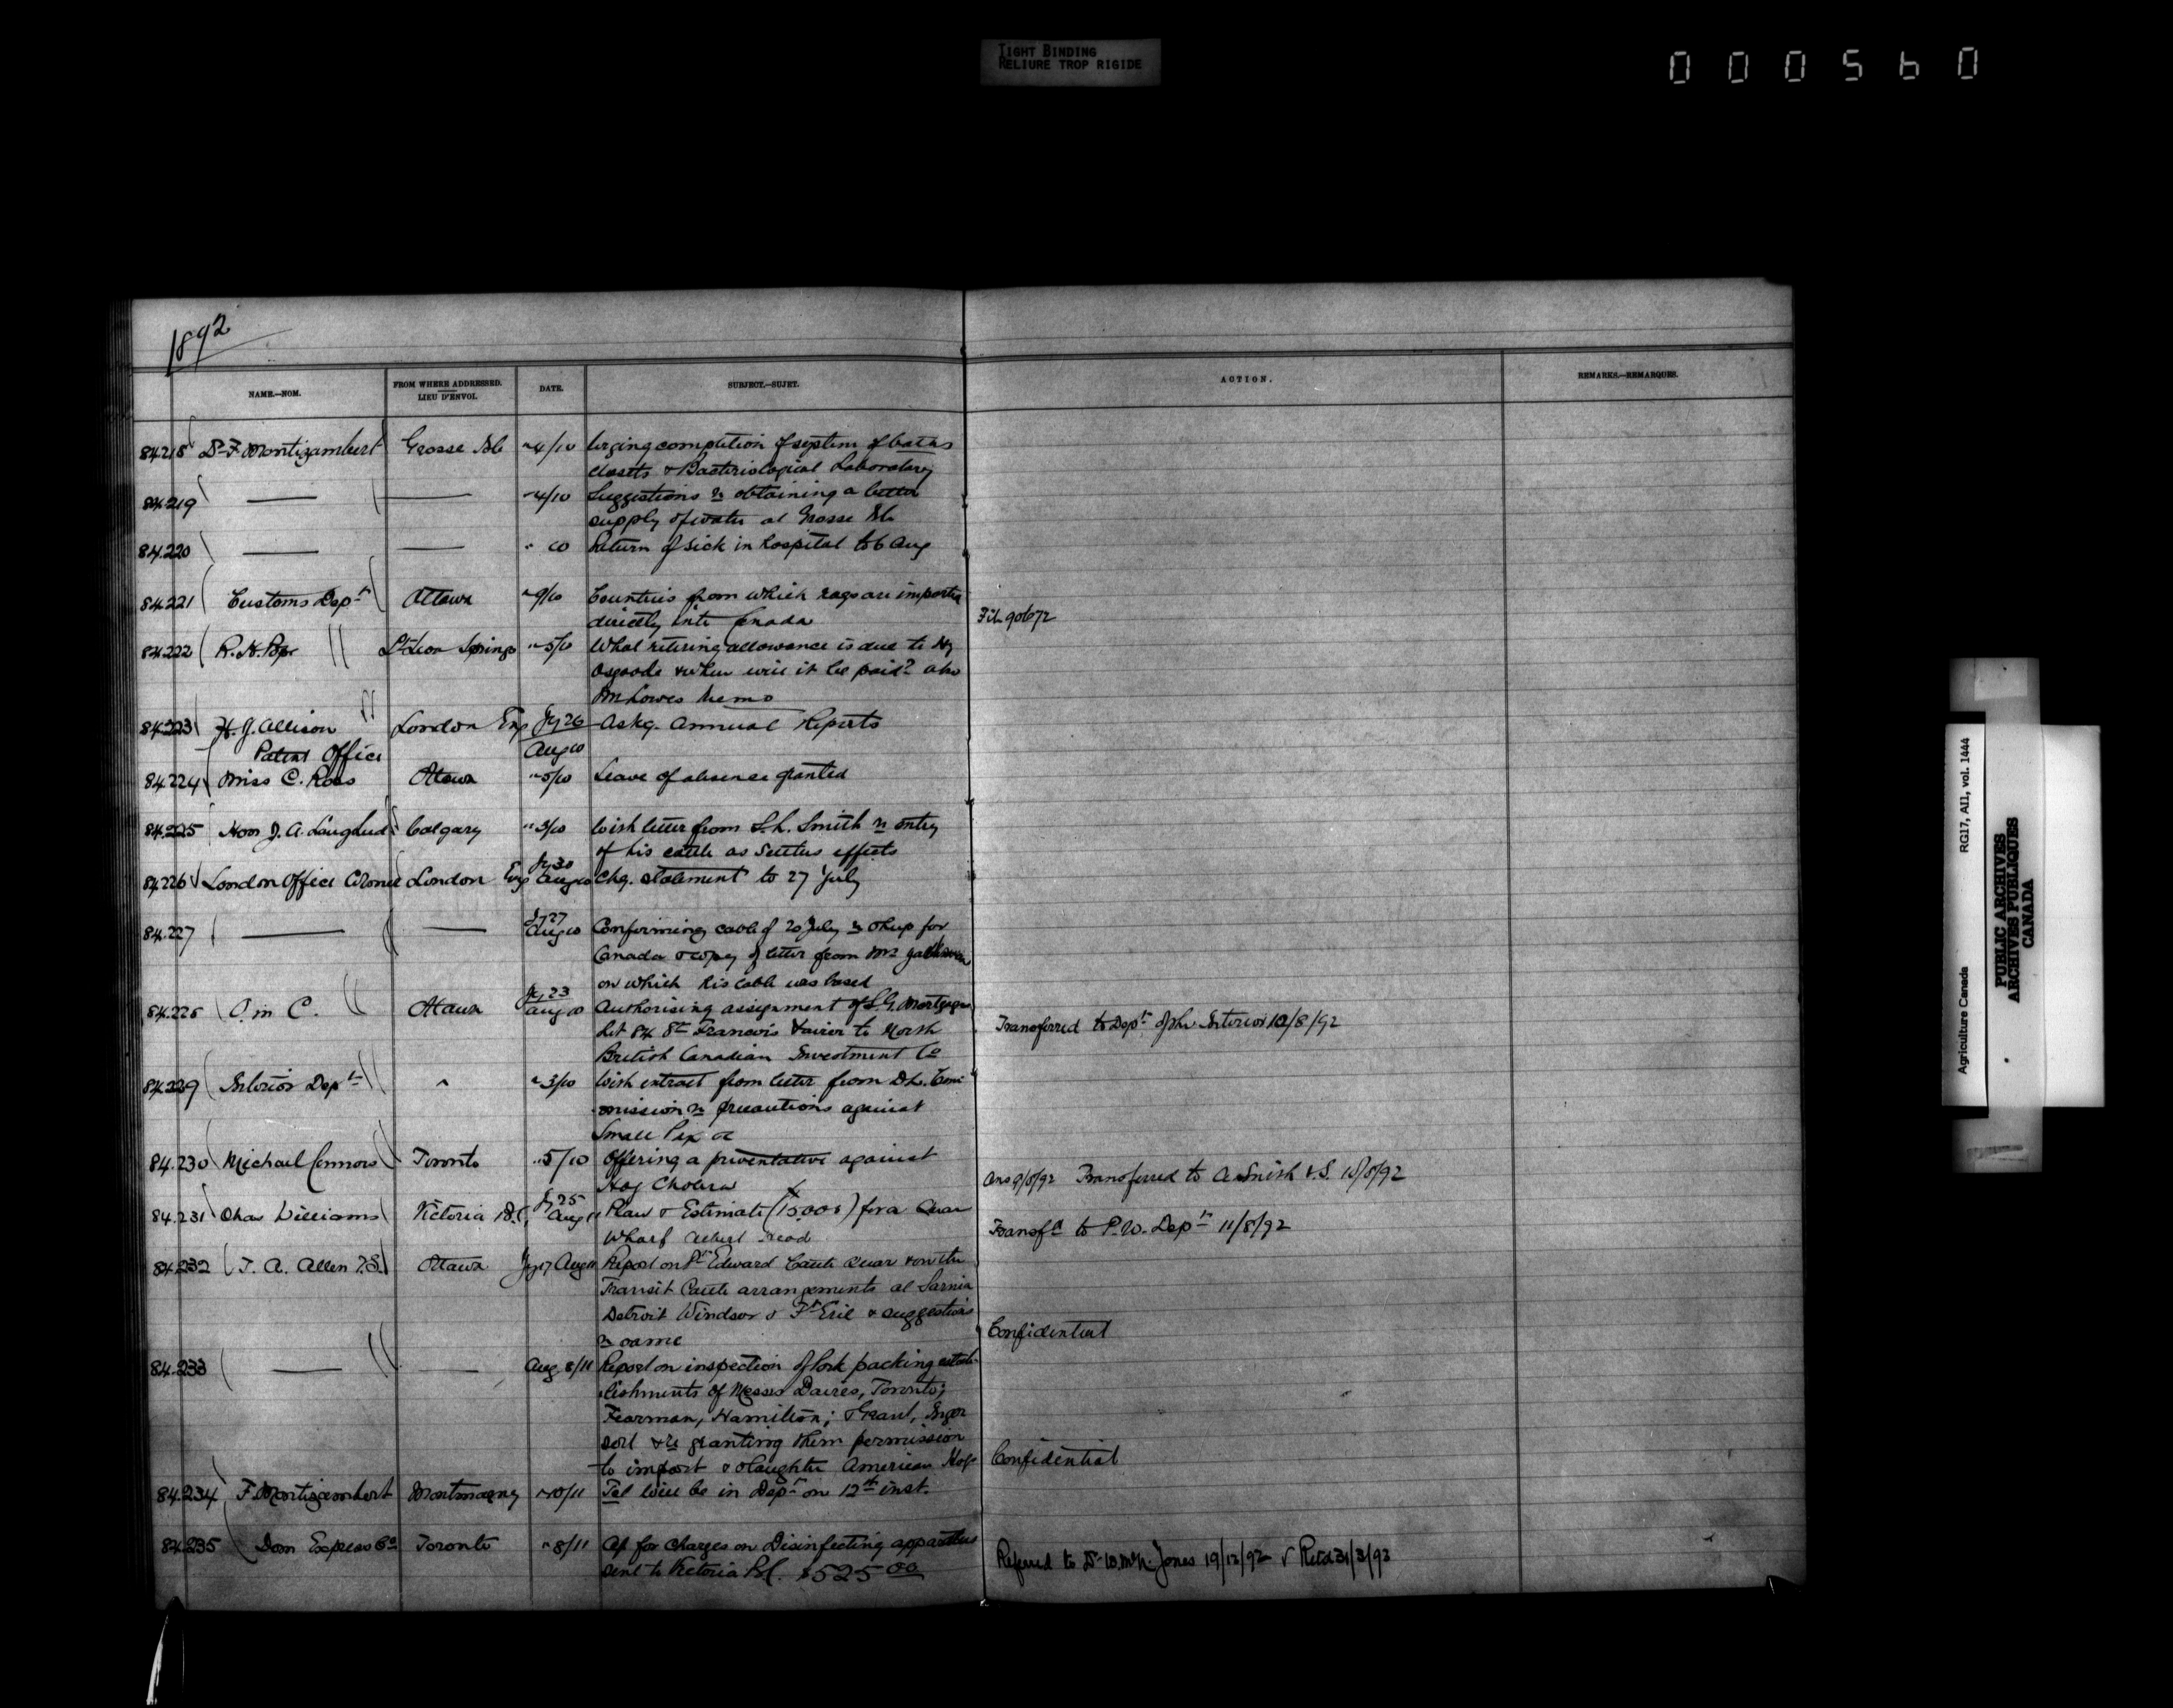 TIGHT BINDING
RELIURE TROP RIGIDE
000560
1892
NAME.—NOM. FROM WHERE ADDRESSED. LIEU D'ENVOI. DATE. SUBJECT.—SUJET. ACTION. REMARKS.—REMARQUES.
84218 Dr F Montizambert Grosse Isle " 4/10 Urging completion of system of baths
closets & Bacteriological Laboratory
84219 " 4/10 Suggestions re obtaining a better
supply of water at Grosse Isle
84.220 " 10 Return of sick in hospital to 6 Aug
84.221 Customs Dept Ottawa " 9/10 Countries from which rags are imported
directly into Canada File 90672
84.222 R. H. Pope St Leon Springs " 5/10 What retiring allowance is due to
Osgoode & when will it be paid? also
Mr Lowes Memo
84.223 H. J. Allison London Eng Jy 26 Askg. Annual Reports
Patent Office Aug 10
84.224 Miss C. Ross Ottawa " 5/10 Leave of absence granted
84.225 Hon J. A. Lougheed Calgary " 3/10 With letter from S. L. Smith re entry
of his cattle as Settlers effects
84226 London Office London Eng Jy 30 Aug 10 Chq. statement to 27 July
84.227 Jy 27 Aug 10 Confirming cable of 20 July re Sheep for
Canada & copy of letter from Mr
on which his cable was based
O. in C. Ottawa Jy 23 Aug 10 Authorising assignment of S. G. Mortgage
Lot 84 St Francois Xavier to North
British Canadian Investment Co
Transferred to Dept of the Interior 10/8/92
84.229 Interior Dept " " 3/10 With extract from letter from D. L. Com-
mission re precautions against
Small Pox &c
84.230 Michael Connors Toronto " 5/10 Offering a preventative against
Hog Cholera
Ans 9/8/92 Transferred to A Smith V.S. 10/8/92
84.231 Chas Williams Victoria B.C. Jy 25 Aug 11 Plan & Estimate (15,000) for a Quar
Wharf Albert Head
Transfd to P.W. Dept 11/8/92
84.232 J. A. Allen V.S. Ottawa Aug 11 Report on Pt Edward Cattle Quar & on the
Transit Cattle arrangements at Sarnia
Detroit Windsor & Ft Erie & suggestions
re same Confidential
84.233 Aug 8/11 Report on inspection of Pork packing estab-
lishments of Messrs Davies, Toronto;
Fearman, Hamilton; & Grant, Inger
soll & re granting them permission
to import & slaughter American Hogs Confidential
84.234 F. Montizambert Montmagny " 10/11 Tel will be in Dept on 12th inst.
84.235 Dom Express Co Toronto " 8/11 for charges on Disinfecting apparatus
sent to Victoria B.C. $525 00
Referred to Dr W. Jones 19/12/92 Retd 31/3/93
Agriculture Canada RG17, AI1, vol. 1444
PUBLIC ARCHIVES
ARCHIVES PUBLIQUES
CANADA